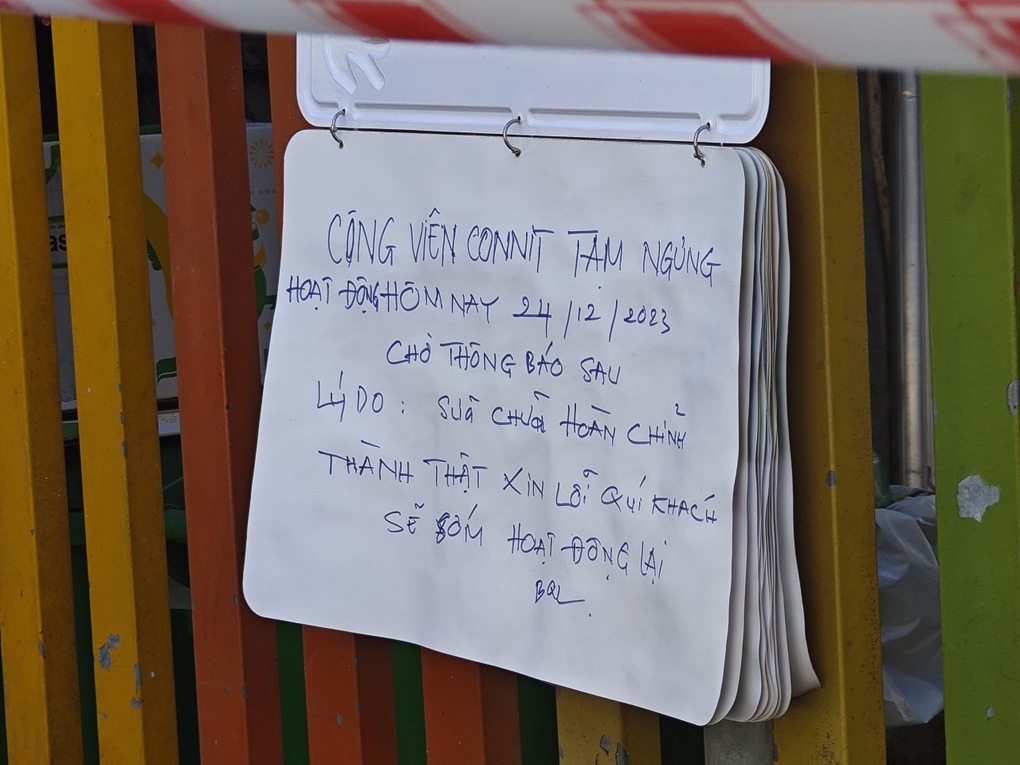 CÔNG VIÊN CONNIT TẠM NGỪNG
HOẠT ĐỘNG HÔM NAY 24/12/2023
CHỜ THÔNG BÁO SAU
LÝ DO : SỬA CHỮA HOÀN CHỈNH
THÀNH THẬT XIN LỖI QUÍ KHÁCH
SẼ SỚM HOẠT ĐỘNG LẠI
BQL.